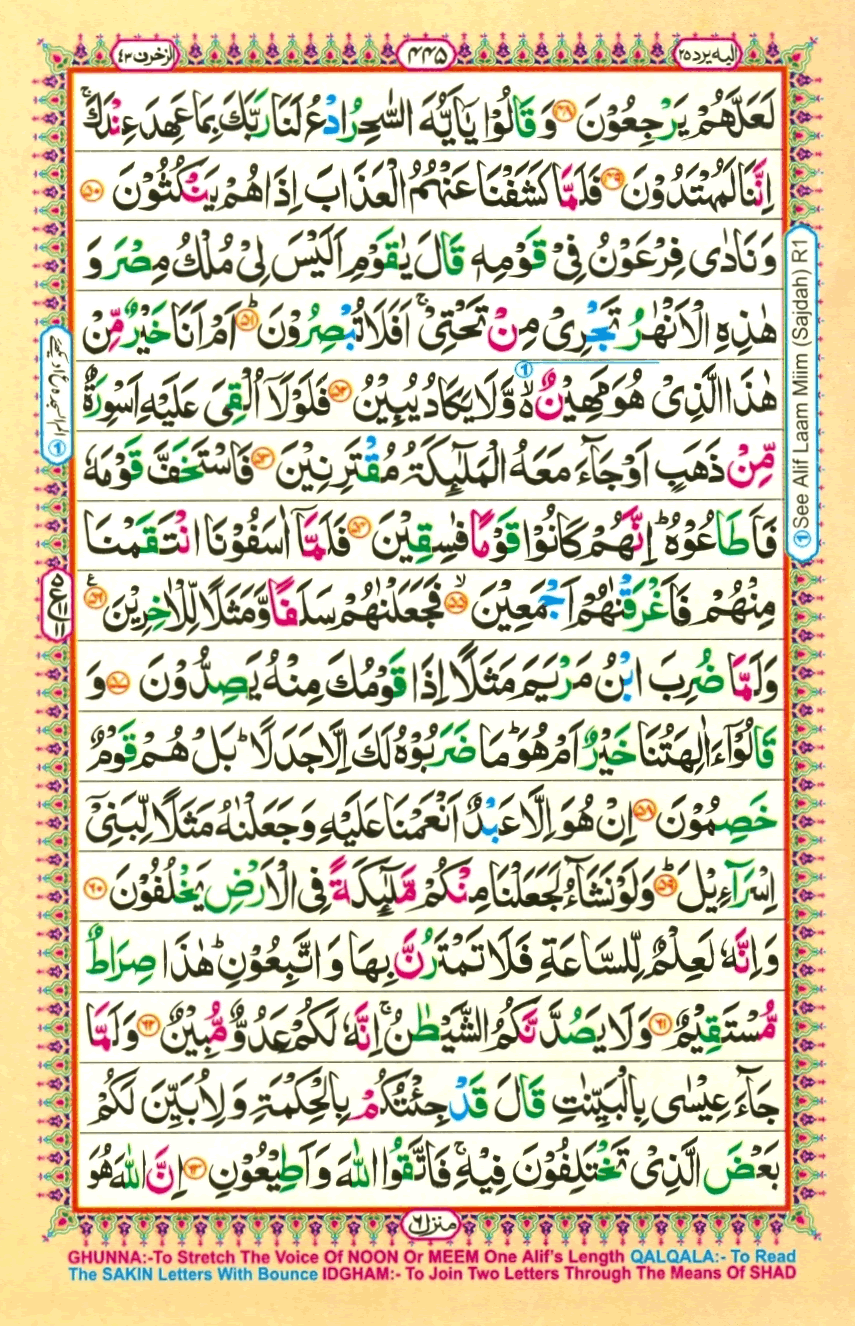 الیه یرد ۲۵
۴۴۵
الزخرف ۴۳
لَعَلَّهُمْ یَرْجِعُوْنَ ﴿۴۸﴾ وَ قَالُوْا یٰۤاَیُّهَ السّٰحِرُ ادْعُ لَنَا رَبَّكَ بِمَا عَهِدَ عِنْدَكَ ۚ
اِنَّنَا لَمُهْتَدُوْنَ ﴿۴۹﴾ فَلَمَّا كَشَفْنَا عَنْهُمُ الْعَذَابَ اِذَا هُمْ یَنْكُثُوْنَ ﴿۵۰﴾
وَ نَادٰی فِرْعَوْنُ فِیْ قَوْمِهٖ قَالَ یٰقَوْمِ اَلَیْسَ لِیْ مُلْكُ مِصْرَ وَ
هٰذِهِ الْاَنْهٰرُ تَجْرِیْ مِنْ تَحْتِیْ ۚ اَفَلَا تُبْصِرُوْنَ ؕ﴿۵۱﴾ اَمْ اَنَا خَیْرٌ مِّنْ
هٰذَا الَّذِیْ هُوَ مَهِیْنٌ ۬ۙ وَّلَا یَكَادُ یُبِیْنُ ﴿۵۲﴾ فَلَوْلَاۤ اُلْقِیَ عَلَیْهِ اَسْوِرَةٌ
مِّنْ ذَهَبٍ اَوْ جَآءَ مَعَهُ الْمَلٰٓىِٕكَةُ مُقْتَرِنِیْنَ ﴿۵۳﴾ فَاسْتَخَفَّ قَوْمَهٗ
فَاَطَاعُوْهُ ؕ اِنَّهُمْ كَانُوْا قَوْمًا فٰسِقِیْنَ ﴿۵۴﴾ فَلَمَّاۤ اٰسَفُوْنَا انْتَقَمْنَا
مِنْهُمْ فَاَغْرَقْنٰهُمْ اَجْمَعِیْنَ ۙ﴿۵۵﴾ فَجَعَلْنٰهُمْ سَلَفًا وَّمَثَلًا لِّلْاٰخِرِیْنَ ﴿۵۶﴾
وَلَمَّا ضُرِبَ ابْنُ مَرْیَمَ مَثَلًا اِذَا قَوْمُكَ مِنْهُ یَصِدُّوْنَ ﴿۵۷﴾ وَ
قَالُوْۤا ءَاٰلِهَتُنَا خَیْرٌ اَمْ هُوَ ؕ مَا ضَرَبُوْهُ لَكَ اِلَّا جَدَلًا ؕ بَلْ هُمْ قَوْمٌ
خَصِمُوْنَ ﴿۵۸﴾ اِنْ هُوَ اِلَّا عَبْدٌ اَنْعَمْنَا عَلَیْهِ وَجَعَلْنٰهُ مَثَلًا لِّبَنِیْۤ
اِسْرَآءِیْلَ ؕ﴿۵۹﴾ وَلَوْ نَشَآءُ لَجَعَلْنَا مِنْكُمْ مَّلٰٓىِٕكَةً فِی الْاَرْضِ یَخْلُفُوْنَ ﴿۶۰﴾
وَاِنَّهٗ لَعِلْمٌ لِّلسَّاعَةِ فَلَا تَمْتَرُنَّ بِهَا وَ اتَّبِعُوْنِ ؕ هٰذَا صِرَاطٌ
مُّسْتَقِیْمٌ ﴿۶۱﴾ وَلَا یَصُدَّنَّكُمُ الشَّیْطٰنُ ۚ اِنَّهٗ لَكُمْ عَدُوٌّ مُّبِیْنٌ ﴿۶۲﴾ وَلَمَّا
جَآءَ عِیْسٰی بِالْبَیِّنٰتِ قَالَ قَدْ جِئْتُكُمْ بِالْحِكْمَةِ وَ لِاُبَیِّنَ لَكُمْ
بَعْضَ الَّذِیْ تَخْتَلِفُوْنَ فِیْهِ ۚ فَاتَّقُوا اللّٰهَ وَ اَطِیْعُوْنِ ﴿۶۳﴾ اِنَّ اللّٰهَ هُوَ
① See Alif Laam Miim (Sajdah) R1
منزل ۶
GHUNNA:-To Stretch The Voice Of NOON Or MEEM One Alif's Length QALQALA:- To Read
The SAKIN Letters With Bounce IDGHAM:- To Join Two Letters Through The Means Of SHAD